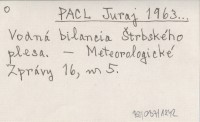 O
PACL Juraj 1963...
Vodná bilancia Štrbského
plesa. - Meteorologické
Zprávy 16, nr 5.